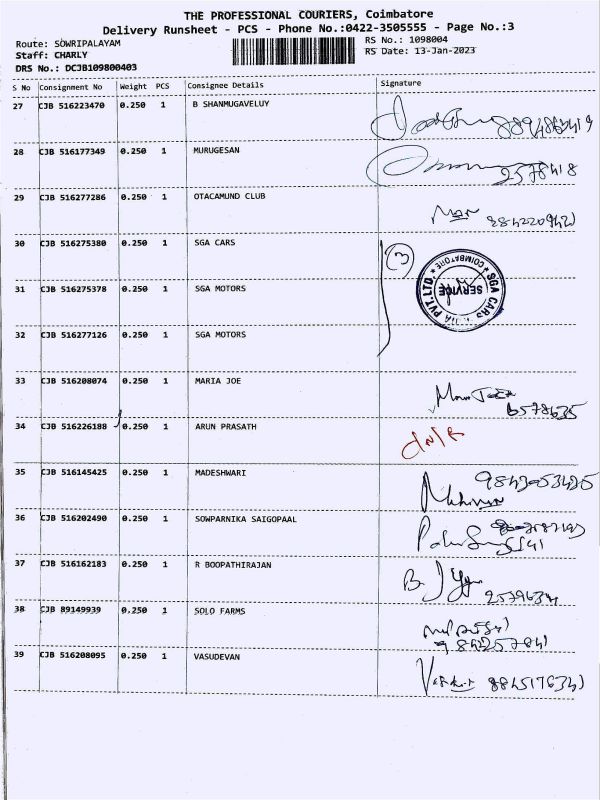 THE PROFESSIONAL COURIERS, Coimbatore
Delivery Runsheet - PCS - Phone No.:0422-3505555 - Page No.:3
Route: SOWRIPALAYAM
RS No.: 1098004
Staff: CHARLY
RS Date: 13-Jan-2023
DRS No.: DCJB109800403
S No Consignment No Weight PCS Consignee Details Signature
27 CJB 516223470 0.250 1 B SHANMUGAVELUY
28 CJB 516177349 0.250 1 MURUGESAN
2578418
29 CJB 516277286 0.250 1 OTACAMUND CLUB
30 CJB 516275380 0.250 1 SGA CARS
3
31 CJB 516275378 0.250 1 SGA MOTORS
SGA CARS INDIA PVT. LTD. * COIMBATORE *
SERVICE
32 CJB 516277126 0.250 1 SGA MOTORS
33 CJB 516208074 0.250 1 MARIA JOE
6578635
34 CJB 516226188 0.250 1 ARUN PRASATH
35 CJB 516145425 0.250 1 MADESHWARI
36 CJB 516202490 0.250 1 SOWPARNIKA SAIGOPAAL
37 CJB 516162183 0.250 1 R BOOPATHIRAJAN
38 CJB 89149939 0.250 1 SOLO FARMS
39 CJB 516208095 0.250 1 VASUDEVAN